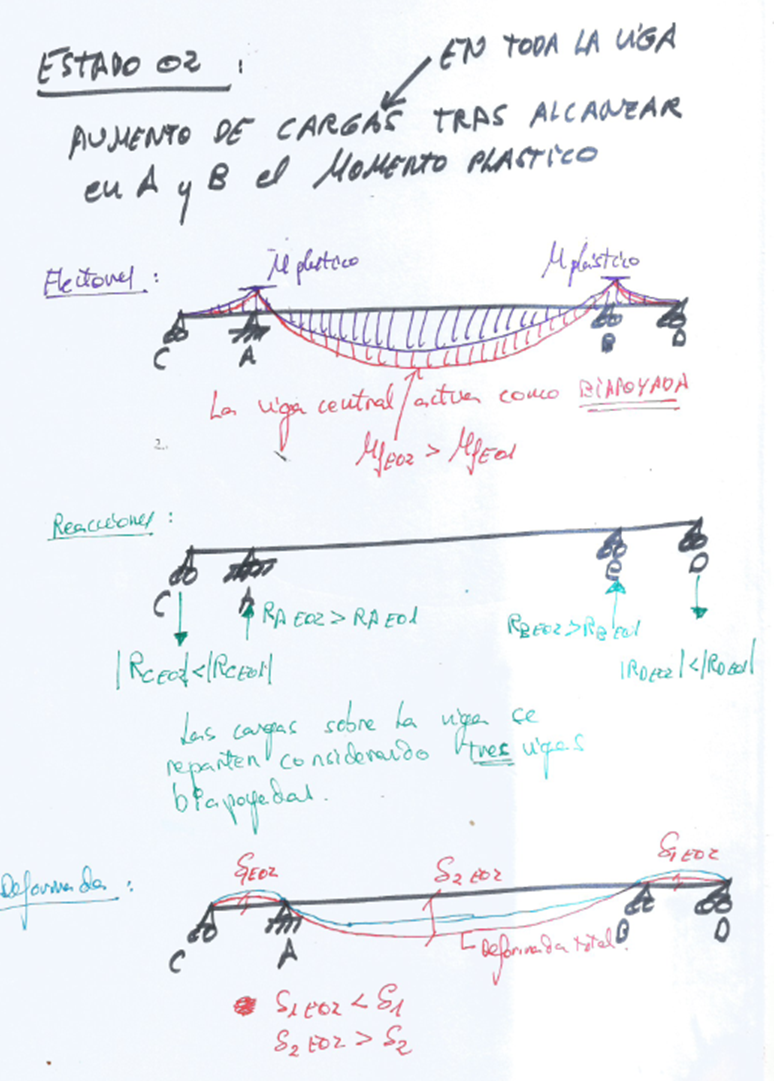 ESTADO 02 :
EN TODA LA VIGA
AUMENTO DE CARGAS TRAS ALCANZAR
en A y B el MOMENTO PLASTICO
Flectores :
M plastico
M plástico
C
A
B
D
La viga central actua como BIAPOYADA
MfE02 > MfE01
Reacciones :
C
A
B
D
RA E02 > RA E01
RB E02 > RB E01
|RC E02| < |RC E01|
|RD E02| < |RD E01|
Las cargas sobre la viga se
reparten considerando tres vigas
biapoyadas.
Deformada :
S1 E02
S2 E02
S1 E02
C
A
B
D
Deformada total
S1 E02 < S1
S2 E02 > S2